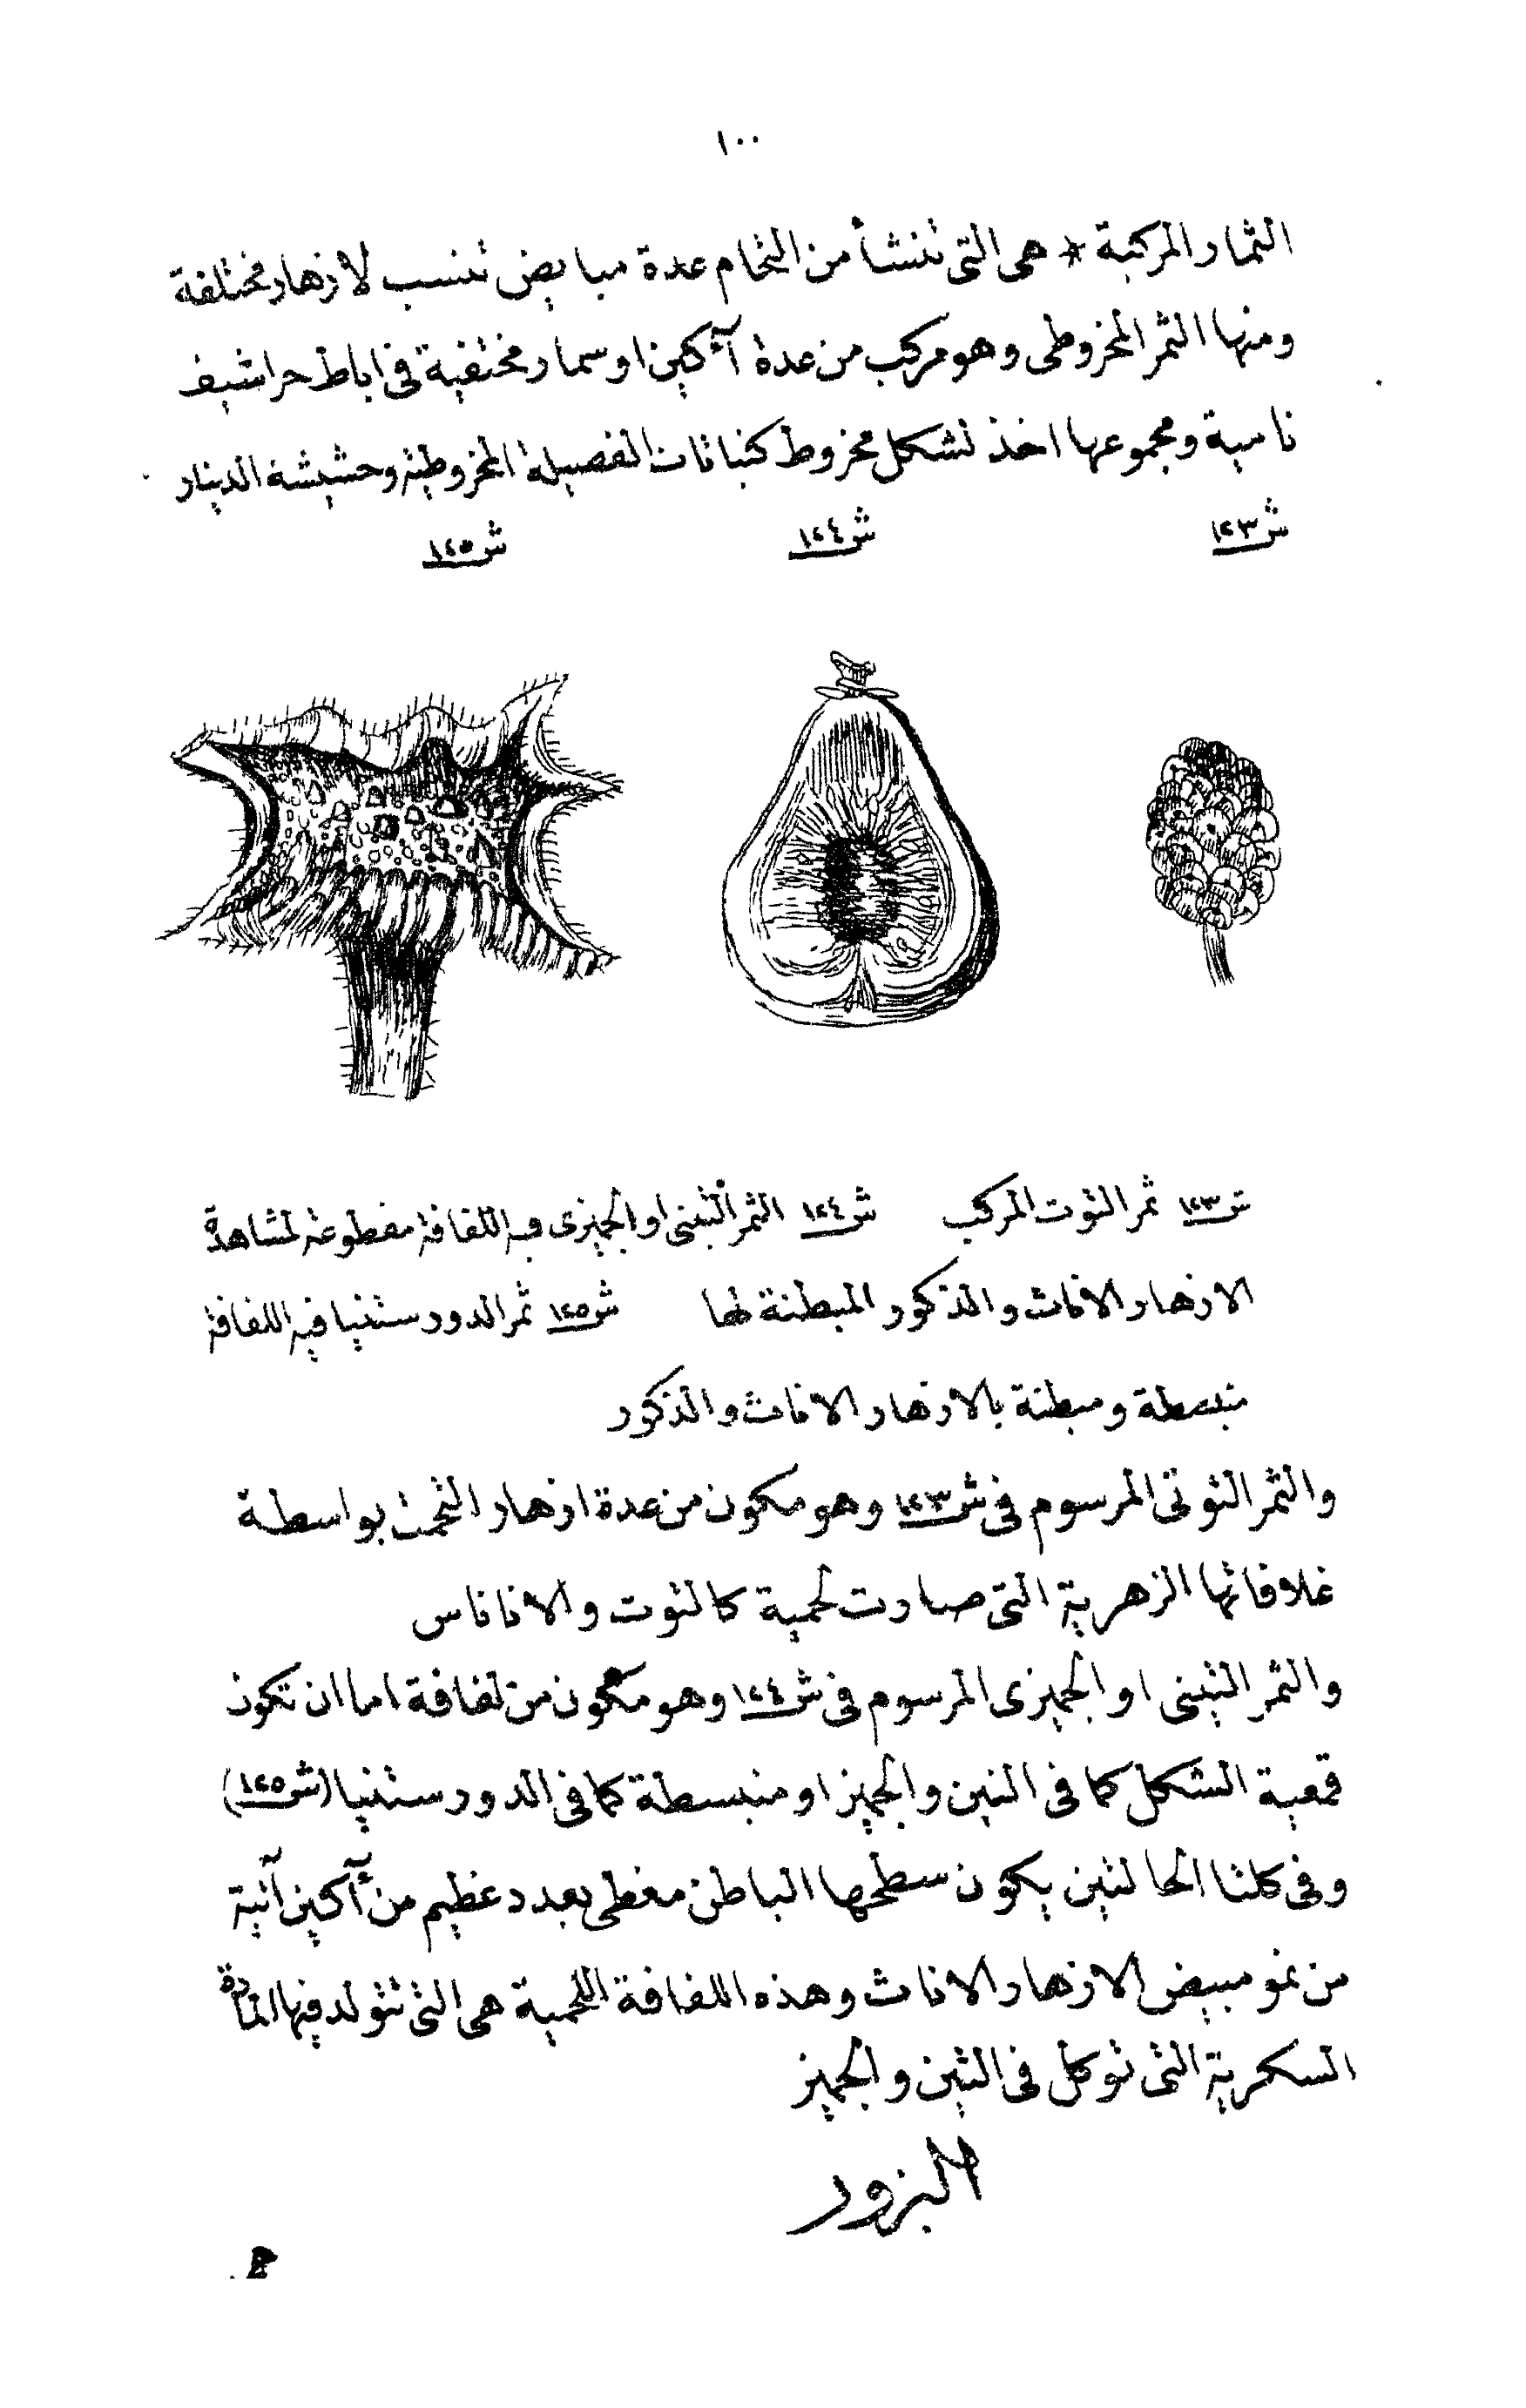 ١٠٠
الثمار المركبة * هى التى تنشأ من التحام عدة مبايض تنسب لازهار مختلفة
ومنها الثمر المخروطى وهو مركب من عدة آكين اوسمار مختفية فى اباط حراشيف
ناسية ومجموعها اخذ لشكل مخروط كنباتات الفصيلة المخروطية وحشيشة الدينار
ش١٢٣ ش١٢٤ ش١٢٥
ش١٢٣ ثمر التوت المركب ش١٢٤ الثمر التينى او الجميزى فيه اللفافة مقطوعة لمشاهدة
الازهار الاناث والذكور المبطنة لها ش١٢٥ ثمر الدورستنيا فيه اللفافة
منبسطة ومبطنة بالازهار الاناث والذكور
والثمر التوتى المرسوم فى ش١٢٣ وهو مكون من عدة ازهار التحمت بواسطة
غلافاتها الزهرية التى صارت لحمية كالتوت والاناناس
والثمر التينى او الجميزى المرسوم فى ش١٢٤ وهو مكون من لفافة اما ان تكون
قمعية الشكل كما فى التين والجميز او منبسطة كما فى الدورستنيا (ش١٢٥)
وفى كلتا الحالتين يكون سطحها الباطن مغطى بعدد عظيم من آكين آتية
من نمو مبيض الازهار الاناث وهذه اللفافة اللحمية هى التى تتولد فيها المادة
السكرية التى توكل فى التين والجميز
البزور